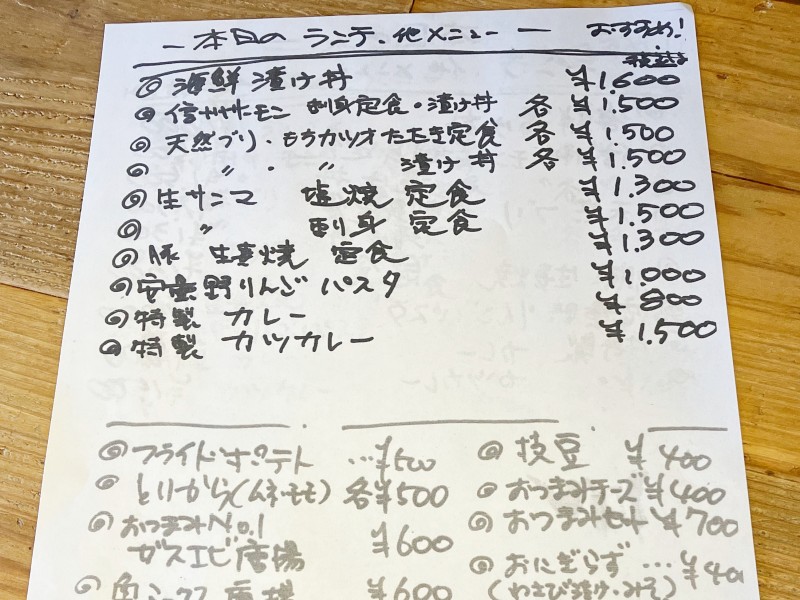 ー本日の ランチ、他メニューー おすすめ!
税込み
◎海鮮漬け丼 ¥1,600
◎信州サーモン 刺身定食・漬け丼 各 ¥1,500
◎天然ブリ・もちカツオたたき定食 各 ¥1,500
◎ 〃 ・ 〃 漬け丼 各 ¥1,500
◎生サンマ 塩焼定食 ¥1,300
◎ 〃 刺身定食 ¥1,500
◎豚生姜焼定食 ¥1,300
◎安曇野りんごパスタ ¥1,000
◎特製 カレー ¥800
◎特製 カツカレー ¥1,500
◎フライドポテト …¥500
◎とりから(ムネ・モモ) 各¥500
◎おつまみNo.1
ガスエビ唐揚 ¥600
唐揚 ¥600
◎枝豆 ¥400
◎おつまみチーズ ¥400
◎おつまみセット ¥700
◎おにぎらず … ¥400
(わさび漬け・みそ)